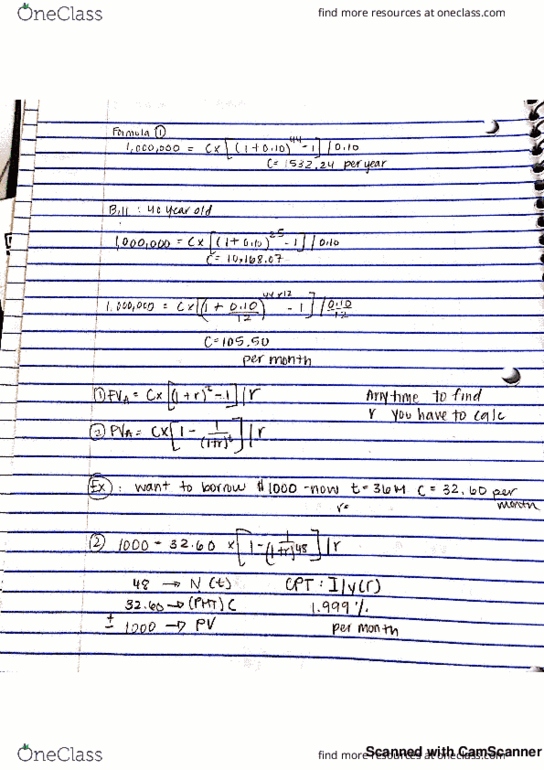 OneClass
find more resources at oneclass.com
Formula ①
1,000,000 = C x [(1+0.10)^44 - 1] / 0.10
C = 1532.24 per year
Bill : 40 year old
1,000,000 = C x [(1+0.10)^25 - 1] / 0.10
C = 10,168.07
1,000,000 = C x [(1 + 0.10/12)^44x12 - 1] / 0.10/12
C = 105.50
per month
① FVA = C x [(1+r)^t - 1] / r
Anytime to find
r you have to calc
② PVA = C x [1 - 1/(1+r)^t] / r
Ex : want to borrow $1000 - now t = 36M C = 32.60 per
month
r=
② 1000 = 32.60 x [1 - 1/(1+r)^48] / r
48 → N (t)
CPT : I/y (r)
32.60 → (PMT) C
1.999%
± 1000 → PV
per month
OneClass
find more resources at oneclass.com
Scanned with CamScanner